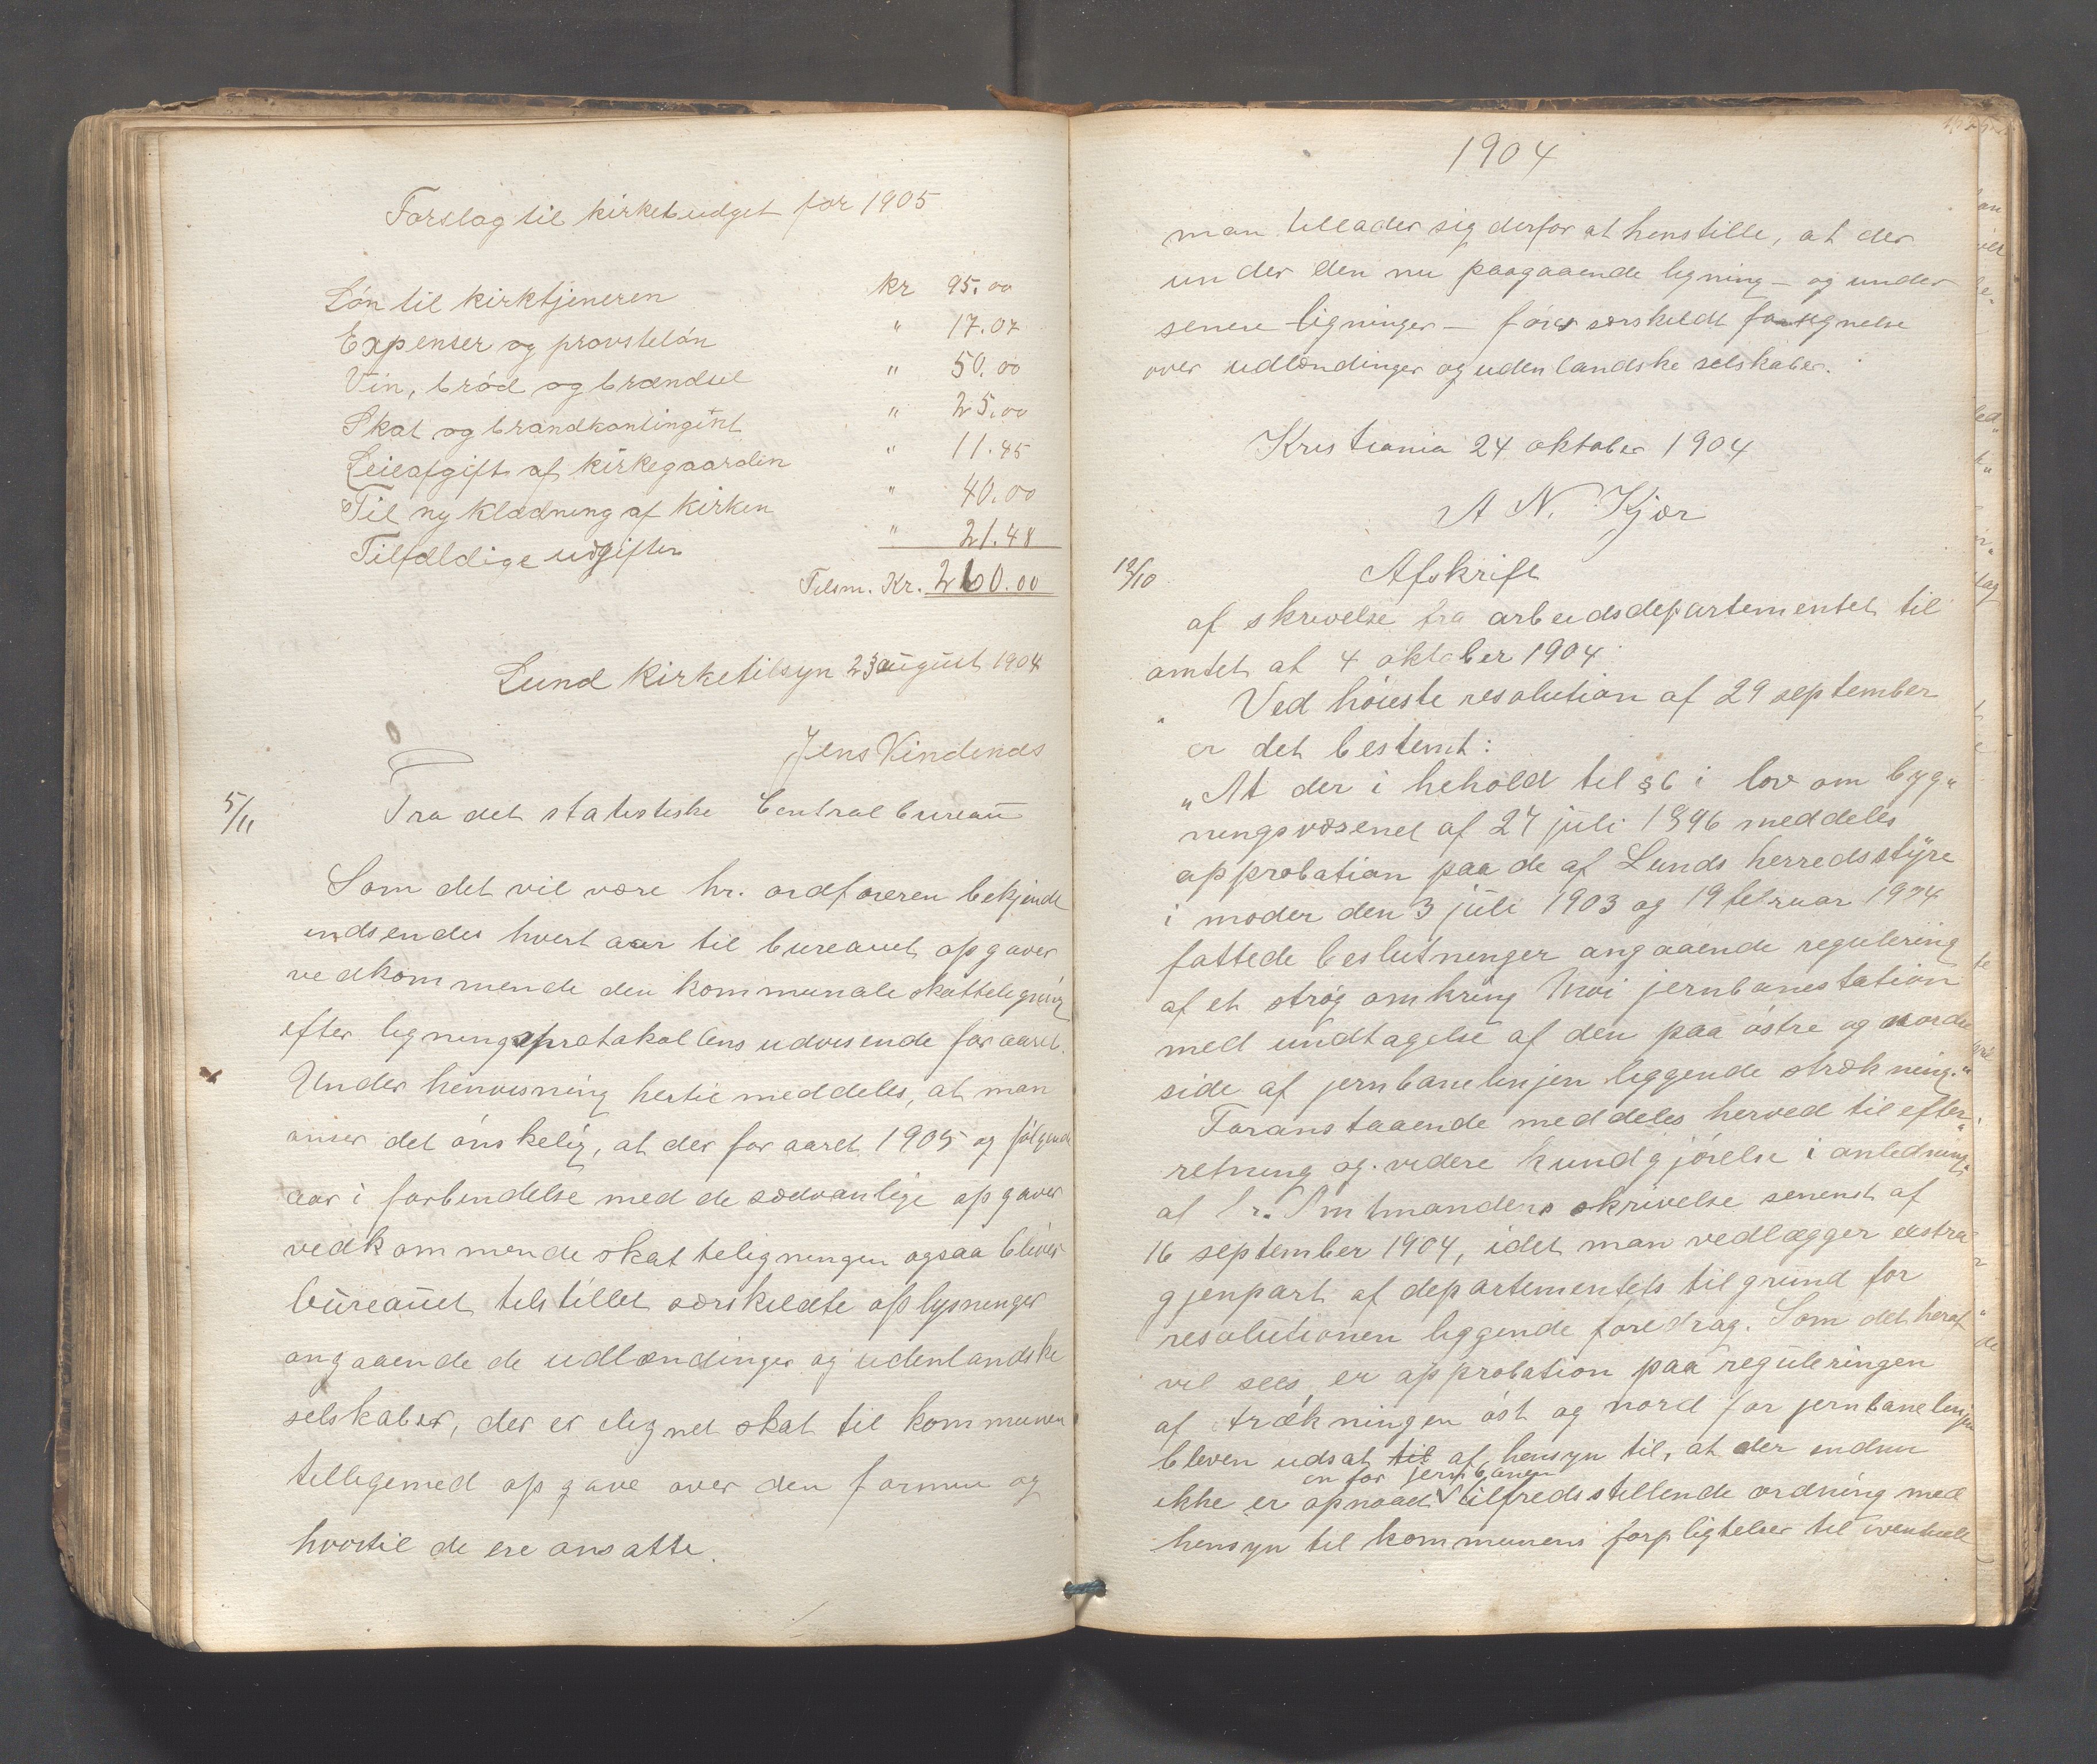 Forslag til kirkebudget for 1905
Lön til kirktjeneren kr 95.00
Expenser og provstelön " 17.07
Vin, bröd og brændsel " 50.00
Skat og brandkontingint " 25.00
Leieafgift af kirkegaarden " 11.45
Til ny klædning af kirken " 40.00
Tilfældige udgifter " 21.48
Tilsm. Kr. 260.00
Lund kirketilsyn 23 august 1904
Jens Vindenes
5/11
Fra det statistiske Centralbureau
Som det vil være hr. ordføreren bekjendt
indsendes hvert aar til bureauet opgaver
vedkommende den kommunale skatteligning
efter ligningsprotokollens udvisende for aaret.
Under henvisning hertil meddeles, at man
anser det önskelig, at der for aaret 1905 og fölgende
aar i forbindelse med de sædvanlige opgaver
vedkommende skatteligningen ogsaa bliver
bureauet tilstillet særskildte oplysninger
angaaende de udlændinger og udenlandske
selskaber, der er ilignet skat til kommunen
tilligemed opgave over den formue og
hvortil de ere ansatte.
1904
man tillader sig derfor at henstille, at der
under den nu paagaaende ligning – og under
senere ligninger – föres særskildt fortegnelse
over udlændinger og udenlandske selskaber.
Kristiania 24 oktober 1904
A N. Kjær
12/10 Afskrift
af skrivelse fra arbeidsdepartementet til
amtet at 4 oktober 1904
Ved höieste resolution af 29 september
er det bestemt:
"At der i hehold til § 6 i lov om byg"
ningsvæsenet af 27 juli 1896 meddeles
approbation paa de af Lunds herredsstyre
i møder den 3 juli 1903 og 19 februar 1904
fattede beslutninger angaaende regulering
af et strøg omkring Moi jernbanestation
med undtagelse af den paa östre og nordre
side af jernbanelinjen liggende strækning."
Foranstaaende meddeles herved til efter"
retning og videre kundgjörelse i anledning
af hr. Amtmandens skrivelse senest af
16 september 1904, idet man vedlægger ekstra
gjenpart af departementets til grund for
resolutionen liggende foredrag. Som det heraf
vil sees, er approbation paa reguleringen
af strækningen öst og nord for jernbanelinjen
bleven udsat til af hensyn til, at der endnu
en for jernbanen
ikke er opnaaet tilfredsstillende ordning med
hensyn til kommunens forpligtelser til eventuelt